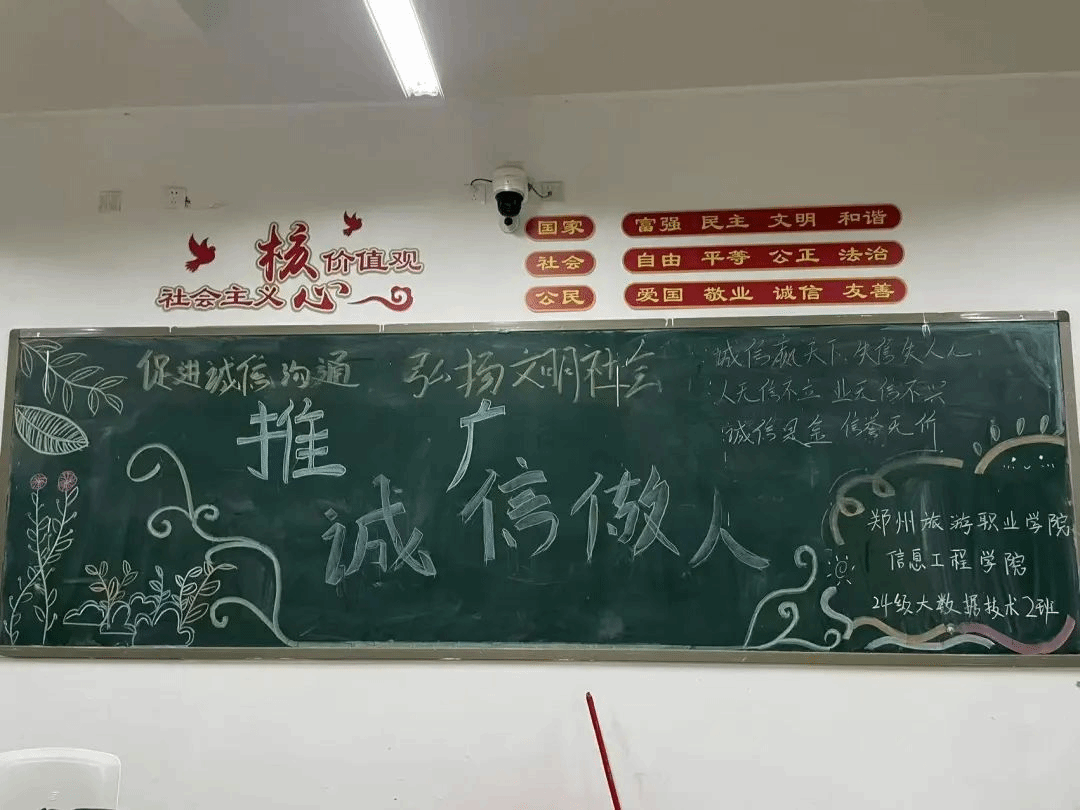 核价值观
社会主义心
国家 富强 民主 文明 和谐
社会 自由 平等 公正 法治
公民 爱国 敬业 诚信 友善
促进诚信沟通 弘扬文明社会
推广
诚信做人
诚信赢天下,失信失人心
人无信不立 业无信不兴
诚信是金 信誉无价
郑州旅游职业学院
信息工程学院
24级大数据技术2班